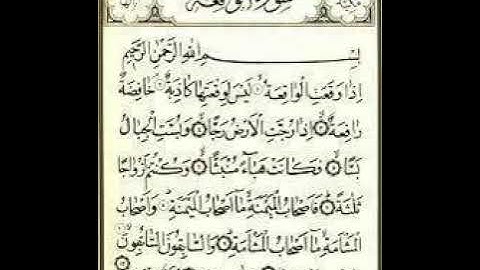 سورة الواقعة
بِسْمِ اللهِ الرَّحْمٰنِ الرَّحِيمِ
اِذَا وَقَعَتِ الْوَاقِعَةُ ۙ لَيْسَ لِوَقْعَتِهَا كَاذِبَةٌ ۘ خَافِضَةٌ
رَافِعَةٌ ۙ اِذَا رُجَّتِ الْاَرْضُ رَجًّا ۙ وَبُسَّتِ الْجِبَالُ
بَسًّا ۙ فَكَانَتْ هَبَاءً مُنْبَثًّا ۙ وَكُنْتُمْ اَزْوَاجًا
ثَلٰثَةً ۜ فَاَصْحَابُ الْمَيْمَنَةِ مَا اَصْحَابُ الْمَيْمَنَةِ ۜ وَاَصْحَابُ
الْمَشْـَٔمَةِ مَا اَصْحَابُ الْمَشْـَٔمَةِ ۜ وَالسَّابِقُونَ السَّابِقُونَ